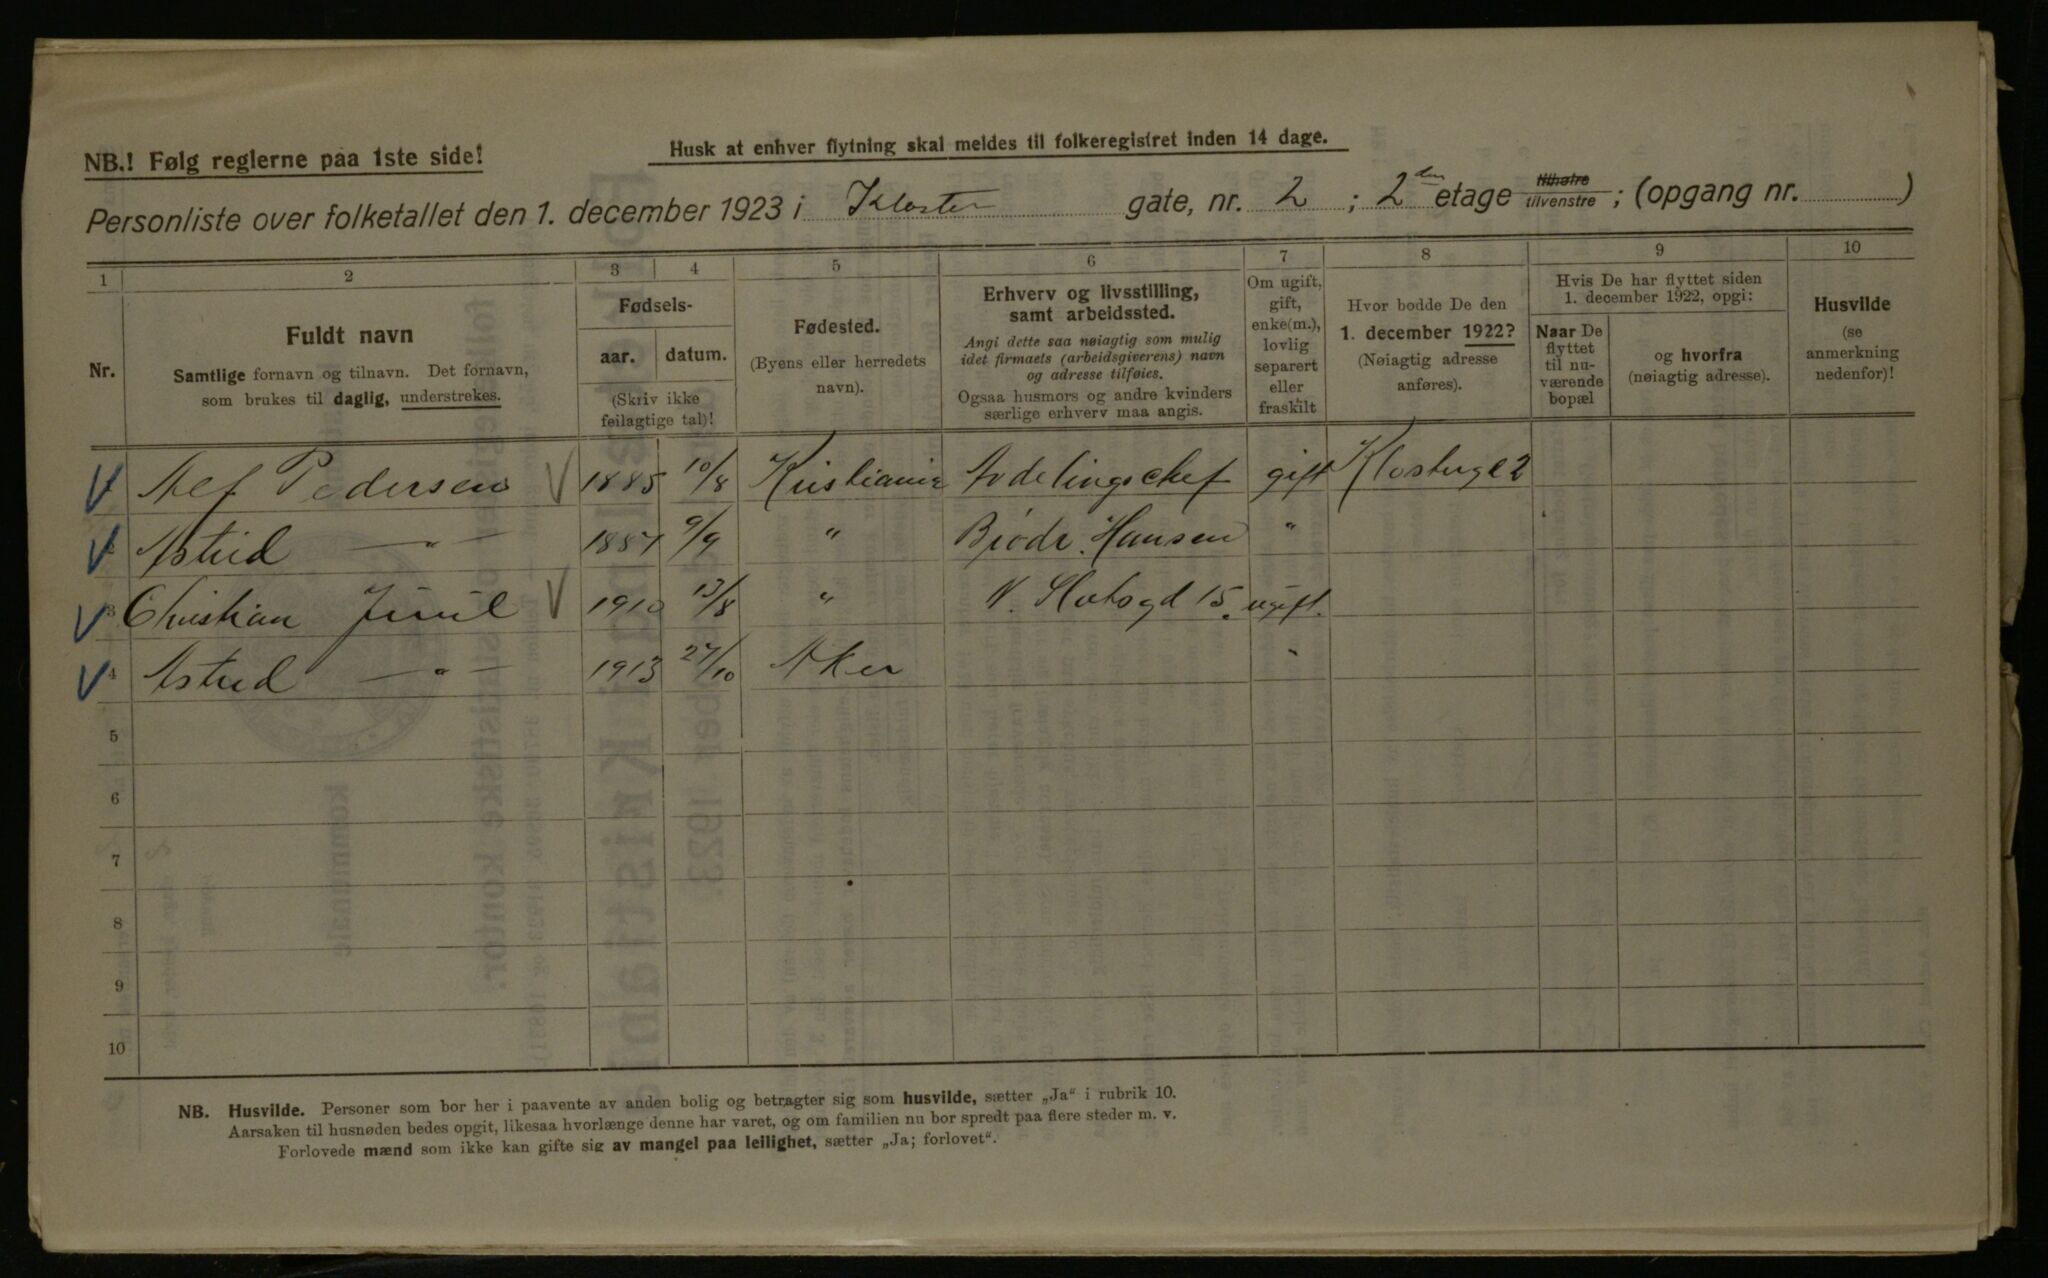 NB.! Følg reglerne paa 1ste side!
Husk at enhver flytning skal meldes til folkeregistret inden 14 dage.
Personliste over folketallet den 1. december 1923 i Kloster gate, nr. 2 ; 2den etage tilhøire tilvenstre ; (opgang nr. )
1 2 3 4 5 6 7 8 9 10
Nr.
Fuldt navn
Samtlige fornavn og tilnavn. Det fornavn,
som brukes til daglig, understrekes.
Fødsels-
aar. datum.
(Skriv ikke
feilagtige tal)!
Fødested.
(Byens eller herredets
navn).
Erhverv og livsstilling,
samt arbeidssted.
Angi dette saa nøiagtig som mulig
idet firmaets (arbeidsgiverens) navn
og adresse tilføies.
Ogsaa husmors og andre kvinders
særlige erhverv maa angis.
Om ugift,
gift,
enke(m.),
lovlig
separert
eller
fraskilt
Hvor bodde De den
1. december 1922?
(Nøiagtig adresse
anføres).
Hvis De har flyttet siden
1. december 1922, opgi:
Naar De
flyttet
til nu-
værende
bopæl
og hvorfra
(nøiagtig adresse).
Husvilde
(se
anmerkning
nedenfor)!
Alf Pedersen 1885 10/8 Kristiania Avdelingschef gift Klostergt 2
2 Astrid —"— 1887 9/9 " Brødr. Hansen "
3 Christian Juul 1910 13/8 " N. Slotsgd 15. ugift.
4 Astrid —"— 1913 27/10 Aker "
5
6
7
8
9
10
NB. Husvilde. Personer som bor her i paavente av anden bolig og betragter sig som husvilde, sætter „Ja“ i rubrik 10.
Aarsaken til husnøden bedes opgit, likesaa hvorlænge denne har varet, og om familien nu bor spredt paa flere steder m. v.
Forlovede mænd som ikke kan gifte sig av mangel paa leilighet, sætter „Ja; forlovet“.